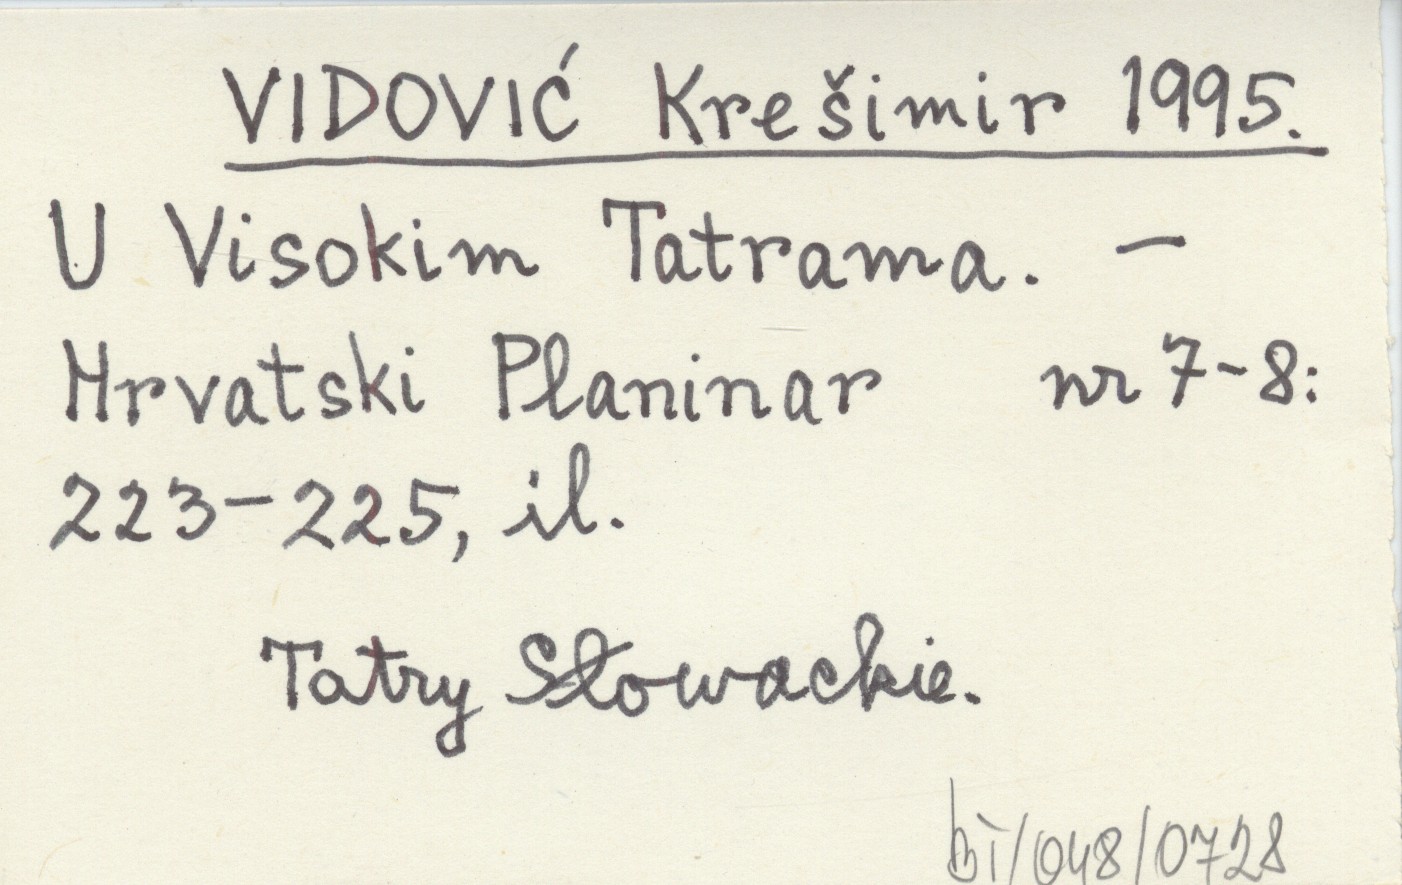 VIDOVIĆ Krešimir 1995.
U Visokim Tatrama. —
Hrvatski Planinar nr 7-8:
223-225, il.
Tatry Słowackie.
bT/048/0728